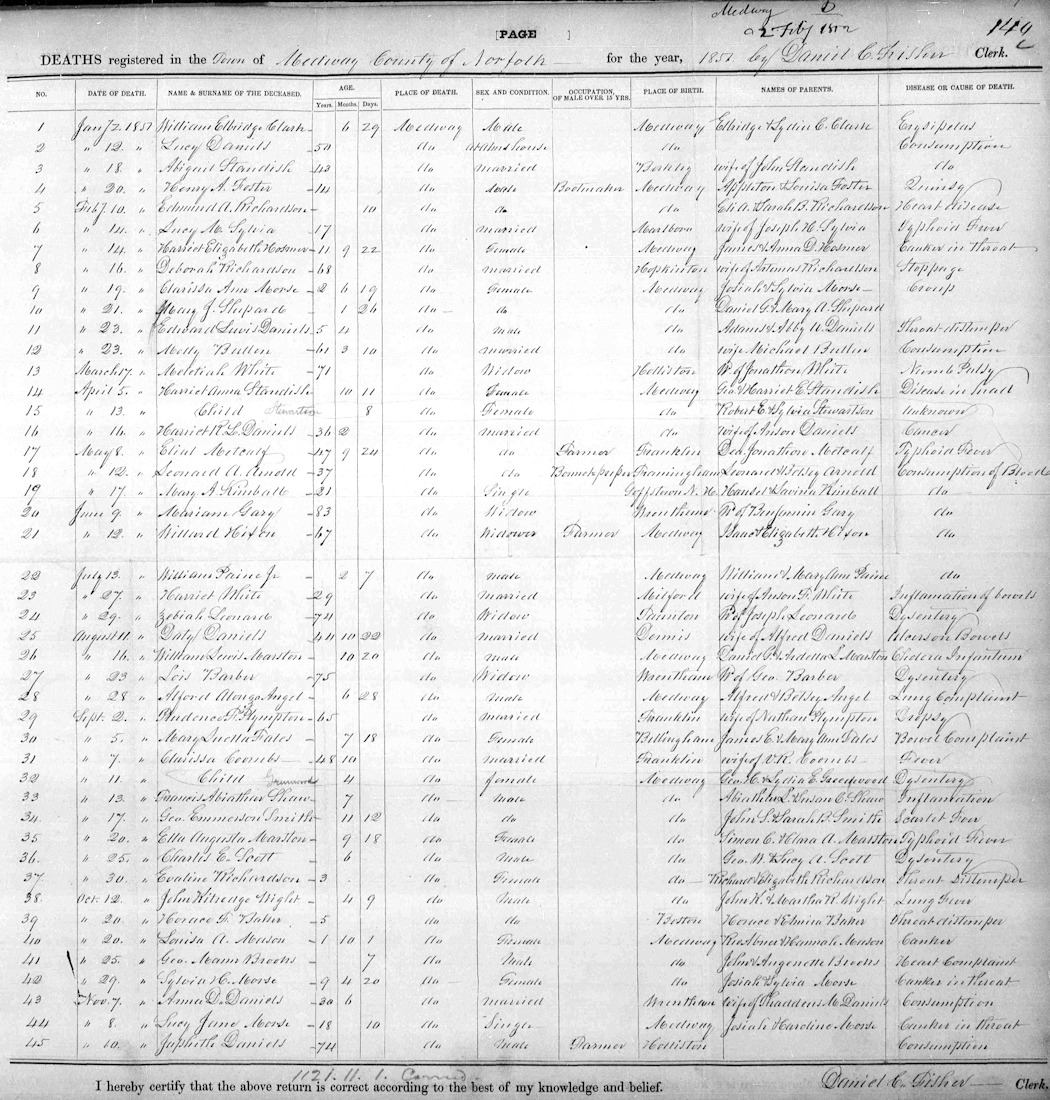 Medway D
2 Feby 1852
[PAGE ] 149
DEATHS registered in the Town of Medway County of Norfolk for the year, 1851 by Daniel C. Fisher Clerk.
NO. DATE OF DEATH. NAME & SURNAME OF THE DECEASED. AGE. PLACE OF DEATH. SEX AND CONDITION. OCCUPATION, OF MALE OVER 15 YRS. PLACE OF BIRTH. NAMES OF PARENTS. DISEASE OR CAUSE OF DEATH.
Years. Months. Days.
1 Jany 2. 1851 William Elbridge Clark 6 29 Medway Male Medway Elbridge & Lydia C. Clark Erysipelas
2 " 12. " Lucy Daniels 50 do at Almshouse do Consumption
3 " 18. " Abigail Standish 43 do married Berkley wife of John Standish do
4 " 20. " Henry A. Foster 14 do Male Bootmaker Medway Appleton & Louisa Foster Quinisy
5 Feby. 10. " Edmund A. Richardson 10 do do do Eli A. & Sarah B. Richardson Heart disease
6 " 14. " Lucy M. Sylvia 17 do married Marlboro wife of Joseph H. Sylvia Typhoid Fever
7 " 14. " Harriet Elizabeth Hosmer 11 9 22 do Female Medway James & Anna D. Hosmer Canker in throat
8 " 16. " Deborah Richardson 68 do married Hopkinton wife of Artemas Richardson Stoppage
9 " 19. " Clarissa Ann Morse 2 6 19 do Female Medway Josiah & Sylvia Morse Croup
10 " 21. " Mary J. Shepard 1 26 do do do Daniel G. & Mary A. Shepard
11 " 23. " Edward Lewis Daniels 5 4 do male do Adams & Abby A. Daniels Throat distemper
12 " 23. " Molly Bullen 61 3 10 do married do wife Michael Bullen Consumption
13 March 17. " Meletiah White 71 do Widow Holliston W. of Jonathan White Numb Palsy
14 April 5. " Harriet Anna Standish 10 11 do Female Medway Geo. & Harriet E. Standish Disease in head
15 " 13. " Child Stewartson 8 do Female do Robert E. & Sylvia Stewartson Unknown
16 " 16. " Harriet R. L. Daniels 36 2 do married do wife of Anson Daniels Cancer
17 May 8. " Eliat Metcalf 47 9 24 do do Farmer Franklin Dea. Jonathan Metcalf Typhoid Fever
18 " 12. " Leonard A. Arnold 37 do do Framingham Leonard & Betsey Arnold Consumption of Blood
19 " 17. " Mary A. Kimball 21 do Single Goffstown N. H. Hansel & Lavinia Kimball do
20 June 9. " Mariam Gary 83 do Widow Wrentham W. of Benjamin Gary do
21 " 12. " Willard Hixon 67 do Widower Farmer Medway Isaac & Elizabeth Hixon do
22 July 13. " William Paine Jr 2 7 do male Medway William & Mary Ann Paine do
23 " 27. " Harriet White 29 do married Milford wife of Anson F. White Inflamation of bowels
24 " 29. " Zebiah Leonard 74 do Widow Taunton W. of Joseph Leonard Dysentery
25 August 11. " Daty Daniels 44 10 22 do married Dennis wife of Alfred Daniels Ulcers on Bowels
26 " 16. " William Lewis Marston 10 20 do male Medway David P. & Ardella L. Marston Cholera Infantum
27 " 23 " Lois Barber 75 do Widow Wrentham W. of Geo. Barber Dysentery
28 " 28 " Alford Alonzo Angel 6 28 do male Medway Alfred & Betsey Angel Lung Complaint
29 Sept. 2. " Prudence F. Plympton 65 do married Franklin wife of Nathan Plympton Dropsy
30 " 5. " Mary Luella Fales 7 18 do Female Bellingham James E. & Mary Ann Fales Bowel Complaint
31 " 7. " Clarissa Coombs 48 10 do married Franklin wife of V. R. Coombs Fever
32 " 11. " Child Greenwood 4 do female Medway Geo. C. & Lydia E. Greenwood Dysentery
33 " 13. " Francis Abiathar Shaw 7 do male do Abiather L. & Susan C. Shaw Inflamation
34 " 17. " Geo. Emmerson Smith 11 12 do do do John S. & Sarah B. Smith Scarlet Fever
35 " 20. " Ella Augusta Marston 9 18 do Female do Simon C. & Clara A. Marston Typhoid Fever
36. " 25. " Charles E. Scott 6 do male do Geo. W. & Lucy A. Scott Dysentery
37. " 30. " Evaline Richardson 3 do Female do Richard & Elizabeth Richardson Throat Distemper
38. Oct. 12. " John Kitredge Wight 4 9 do Male do John K. & Martha R. Wight Lung Fever
39 " 20. " Horace F. Baker 5 do do Boston Horace & Elmira Baker Throat distemper
40 " 20. " Louisa A. Mason 1 10 1 do Female Medway Abner & Hannah Mason Canker
41 " 25. " Geo. Mann Brooks 7 do Male do John & Angenette Brooks Heart Complaint
42 " 29. " Sylvia C. Morse 9 4 20 do Female do Josiah & Sylvia Morse Canker in throat
43 Nov. 7. " Anna D. Daniels 30 6 do married Wrentham wife of Thaddeus M. Daniels Consumption
44 " 8. " Lucy Jane Morse 18 10 do Single Medway Josiah & Caroline Morse Canker in throat
45 " 10. " Japhith Daniels 74 do Male Farmer Holliston Consumption
1121. 11. 1.
I hereby certify that the above return is correct according to the best of my knowledge and belief. Daniel C. Fisher Clerk.